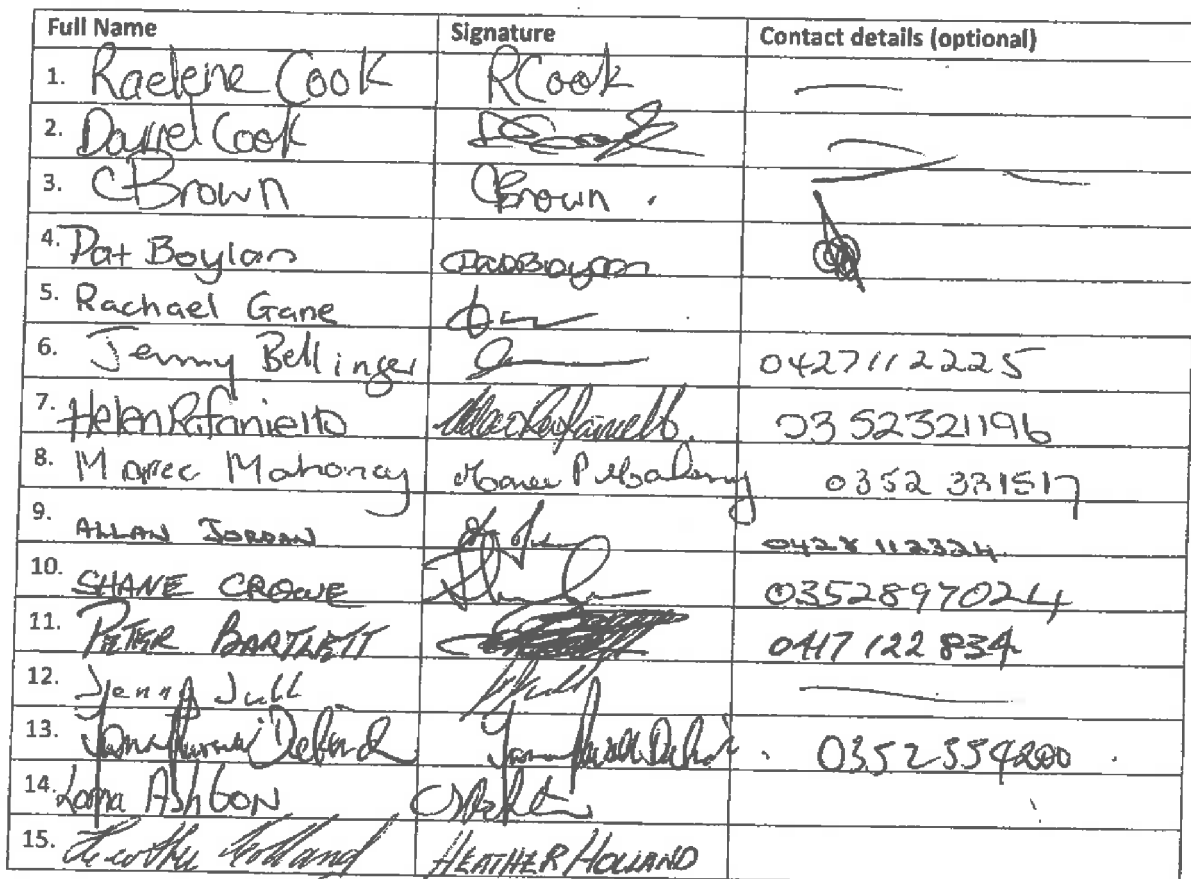 Full Name Signature Contact details (optional)
1. Raelene Cook RCook
2. Darrel Cook
3. CBrown CBrown.
4. Pat Boylan
5. Rachael Gane
6. Jenny Bellinger 0427112225
7. Helen Rafaniello 03 52321196
8. Maree Mahoney Maree P Mahoney 0352 331517
9. ALLAN JORDAN 0428 112324
10. SHANE CROWE 0352897024
11. PETER BARTLETT 0417 122 834
12. Jenny Jull
13. 0352554200
14. Lorna Ashton
15. Heather Holland HEATHER HOLLAND